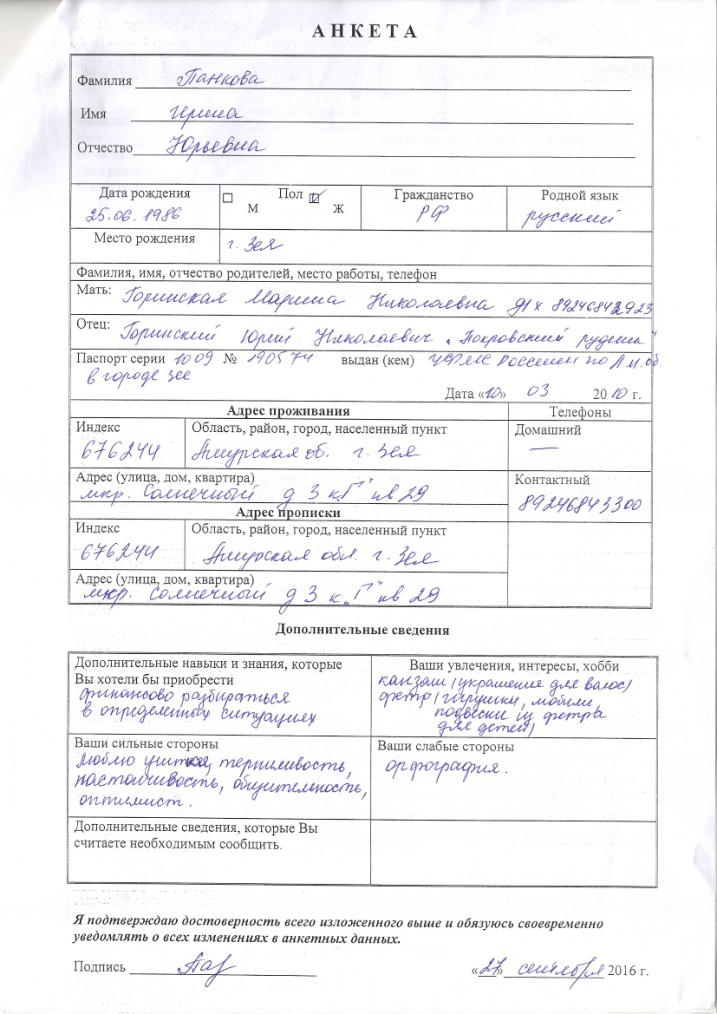 АНКЕТА
Фамилия Панкова
Имя Ирина
Отчество Юрьевна
Дата рождения Пол Гражданство Родной язык
25.06.1986 М Ж РФ русский
Место рождения г. Зея
Фамилия, имя, отчество родителей, место работы, телефон
Мать: Горинская Марина Николаевна д/х 89246842923
Отец: Горинский Юрий Николаевич „Покровский рудник"
Паспорт серии 1009 № 190574 выдан (кем) УФМС России по Ам.об.
в городе Зее
Дата «10» 03 2010 г.
Адрес проживания Телефоны
Индекс Область, район, город, населенный пункт Домашний
676244 Амурская об. г. Зея —
Адрес (улица, дом, квартира) Контактный
мкр. Солнечный д 3 к„Г" кв 29 89246843300
Адрес прописки
Индекс Область, район, город, населенный пункт
676244 Амурская обл. г. Зея
Адрес (улица, дом, квартира)
мкр. Солнечный д 3 к„Г" кв 29
Дополнительные сведения
Дополнительные навыки и знания, которые Ваши увлечения, интересы, хобби
Вы хотели бы приобрести канзаши (украшения для волос)
финансово разбираться фетр (игрушки, мобили,
в определенных ситуациях подвески из фетра
для детей)
Ваши сильные стороны Ваши слабые стороны
люблю учиться, терпиливость, орфография.
настойчивость, общительность,
оптимист.
Дополнительные сведения, которые Вы
считаете необходимым сообщить.
Я подтверждаю достоверность всего изложенного выше и обязуюсь своевременно
уведомлять о всех изменениях в анкетных данных.
Подпись «27» сентября 2016 г.